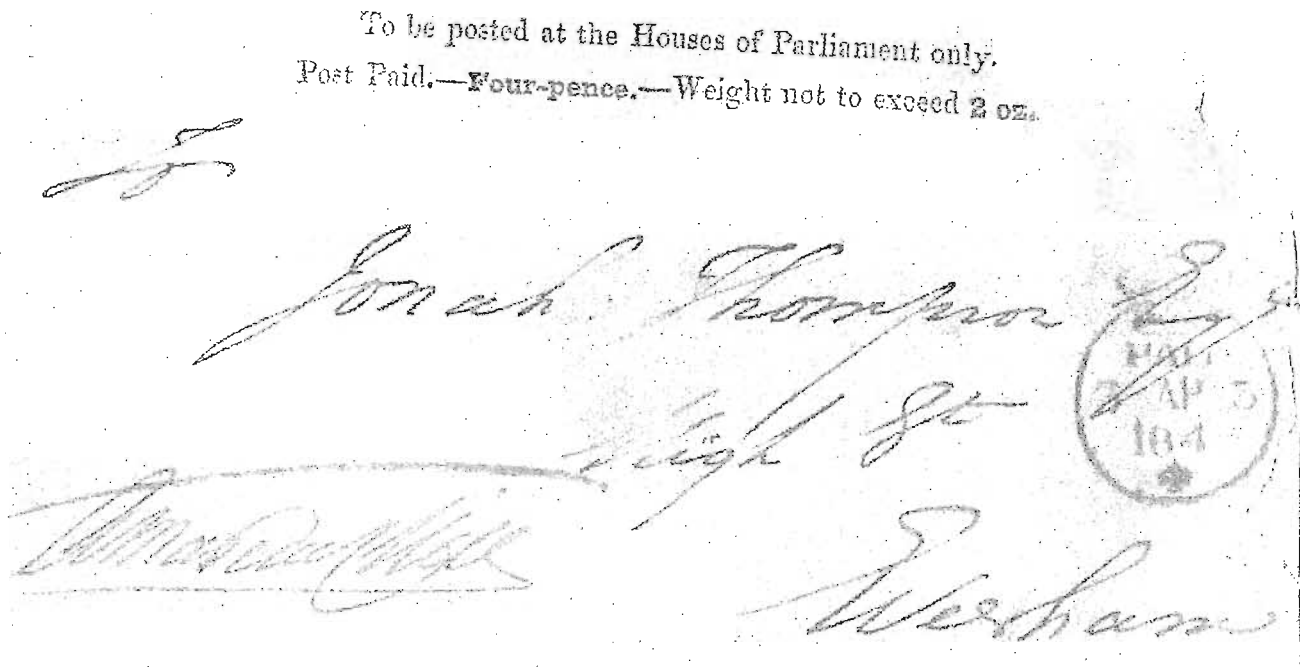 To be posted at the Houses of Parliament only.
Post Paid.—Four-pence.—Weight not to exceed 2 oz.
Jonah Thompson Esq
High St
PAID
AP 3
184